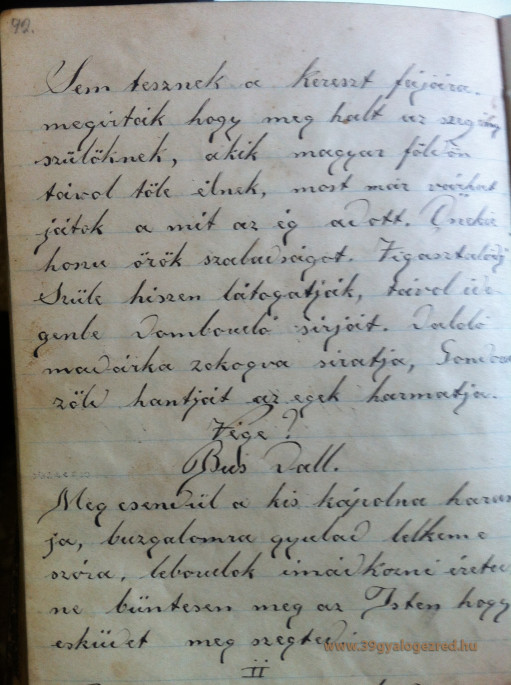 92.
Sem tesznek a kereszt fájára.
megirták hogy meg halt az szegény
szülöknek, akik magyar földön
távol töle élnek, most már várhat
ják a mit az ég adott. Öneki
hosu örök szabadságot. Vigasztalódj
Szüle hiszen látogatják, távol ide
genbe domboudó sirját. Daloló
madárka zokogva siratja,
zöld hantját az egek harmatja.
Vége?
Bus dall.
Meg csendül a kis kápolna haran
ja, buzgalomra gyulad lelkem e
szóra, leboudok imádkozni éreted
ne büntesen meg az Isten hogy
esküdet meg szegted.
II
www.39gyalogezred.hu